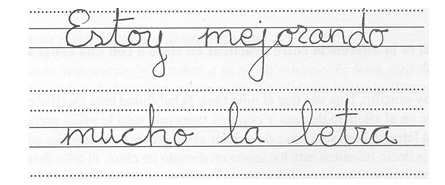 Estoy mejorando
mucho la letra